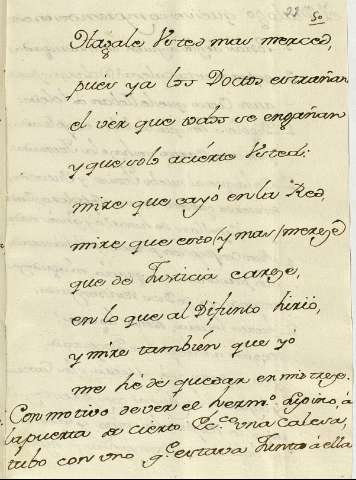 23 50
Hagale Vsted mas merced,
pues ya los Doctos estrañan
el vèr que todos se engañan
y que solo aciérte Vsted:
mire que cayó en la Red,
mire que esto (y mas) mereze
que de Justicia careze,
en lo que al Difunto hirió,
y mire también que yó
me hé de quedar en mis treze.
Con motivo de ver el herm.º à
la puerta de cierto una Calesa,
tubo con uno q.e estava Junto á ella